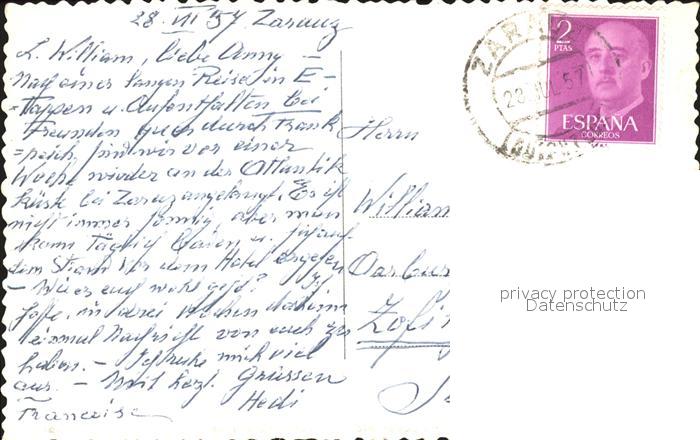 28. VII 57 Zarauz
L. William, liebe Anny –
Nach einer langen Reise in E-
tappen u. Aufenthalten bei
Freunden quer durch Frank
=reich, sind wir vor einer
Woche wieder an der Atlantik
küste bei Zarauz angelangt. Es ist
nicht immer sonnig, aber man
kann täglich baden u.
dem Strand vor dem Hotel
– Wie es euch wohl geht? Ich
hoffe, in drei Wochen daheim
einmal Nachricht von euch zu
haben. – Ich ruhe mich viel
aus. – Mit herzl. Grüssen
Hedi
Francoise
Herrn
William
Zofi
ZARAUZ
28 JUL 57
2
PTAS
ESPAÑA
CORREOS
privacy protection
Datenschutz